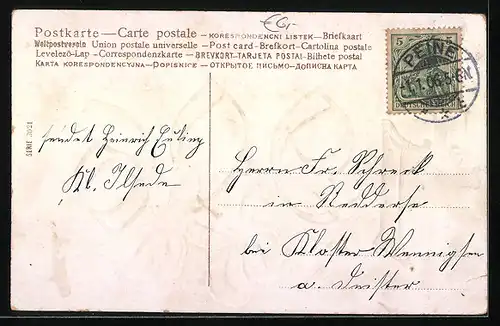 Postkarte — Carte postale - KORESPONDENCNI LISTEK — Briefkaart
Weltpostverein Union postale universelle - Post card - Brefkort - Cartolina postale
Levelező-Lap - Correspondenzkarte - BREVKORT - TARJETA POSTAL - Bilhete postal
KARTA KORESPONDENCYJNA - DOPISNICE - ОТКРЫТОЕ ПИСЬМО - ДОПИСНА КАРТА
5
PEINE
SERIE 3021
sendet Heinrich Euling
Kl. Ilsede
Herrn Fr. Schreck
in Redderse
bei Kloster Wennigsen
a. Deister